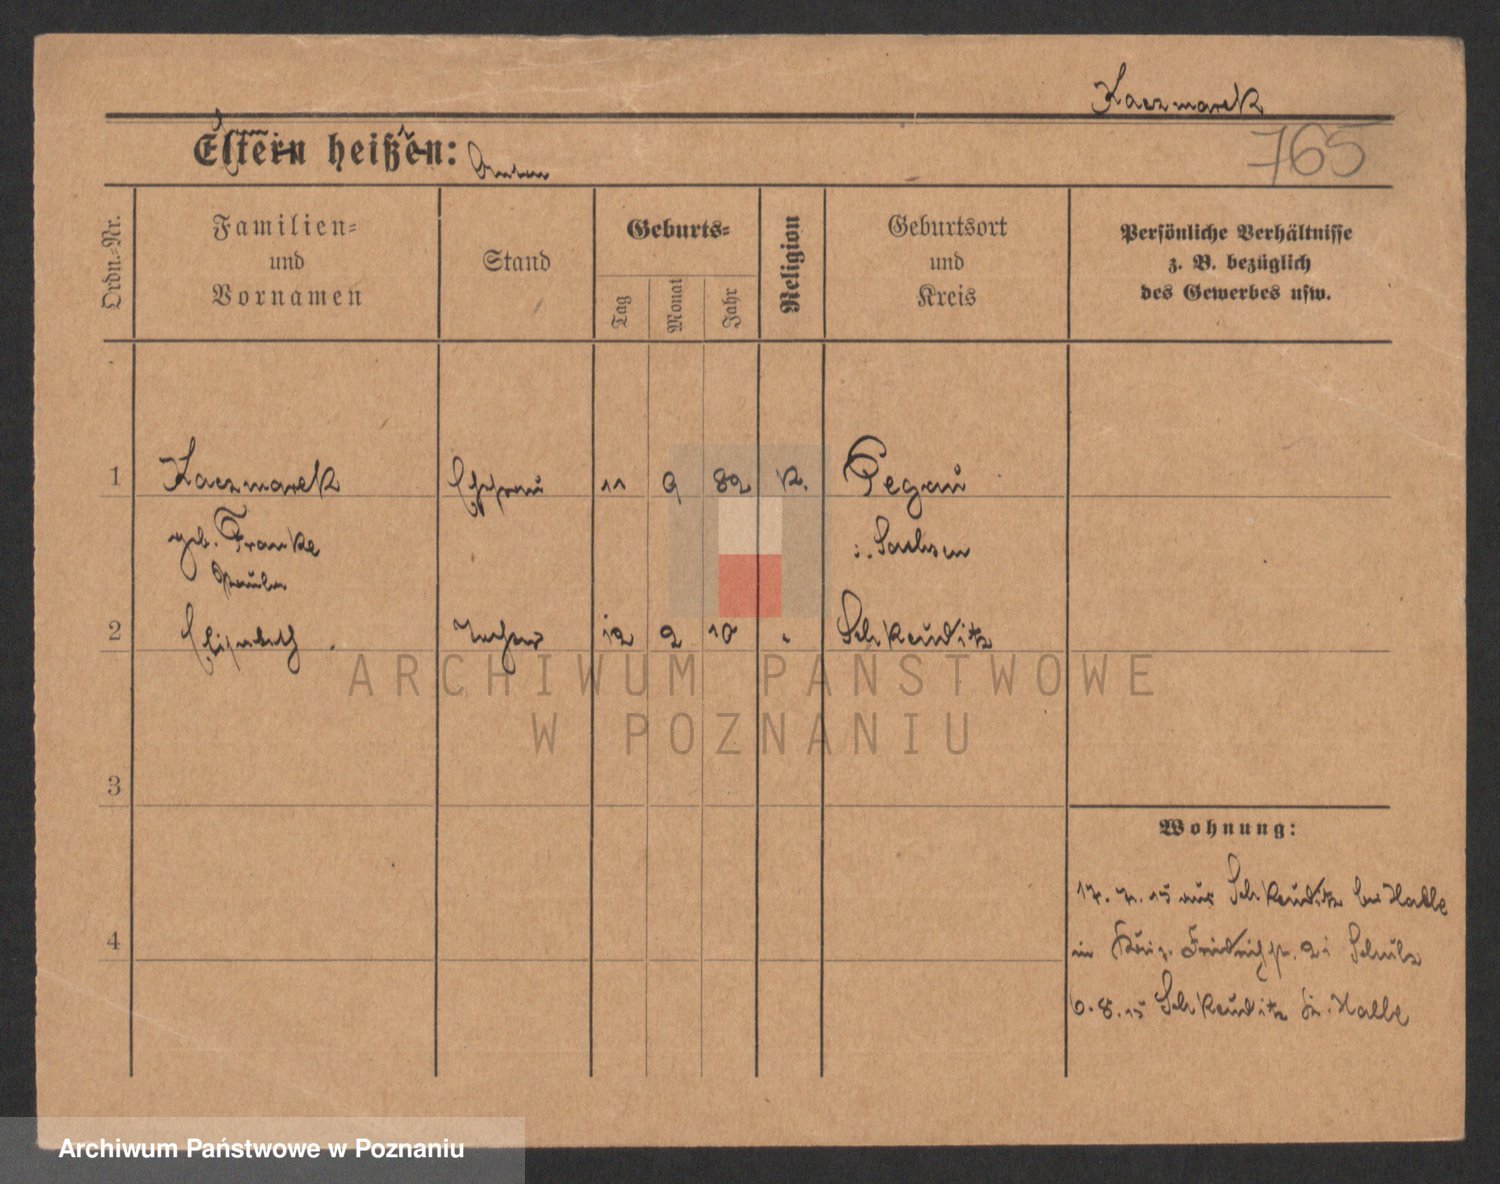 Kaczmarek
Eltern heißen: Anton
765
Ordn.-Nr.
Familien-
und
Vornamen
Stand
Geburts-
Tag
Monat
Jahr
Religion
Geburtsort
und
Kreis
Persönliche Verhältnisse
z. B. bezüglich
des Gewerbes usw.
1 Kaczmarek Ehefrau 11 9 82 k. Pegau
geb. Franke i. Sachsen
Paula
2 Elisabeth Tochter 12 2 10 " Schkeuditz
3
4
Wohnung:
17. 7. 15 aus Schkeuditz bei Halle
in Friedrichstr. Schulz
6. 8. 15 Schkeuditz b. Halle
ARCHIWUM PAŃSTWOWE
W POZNANIU
Archiwum Państwowe w Poznaniu